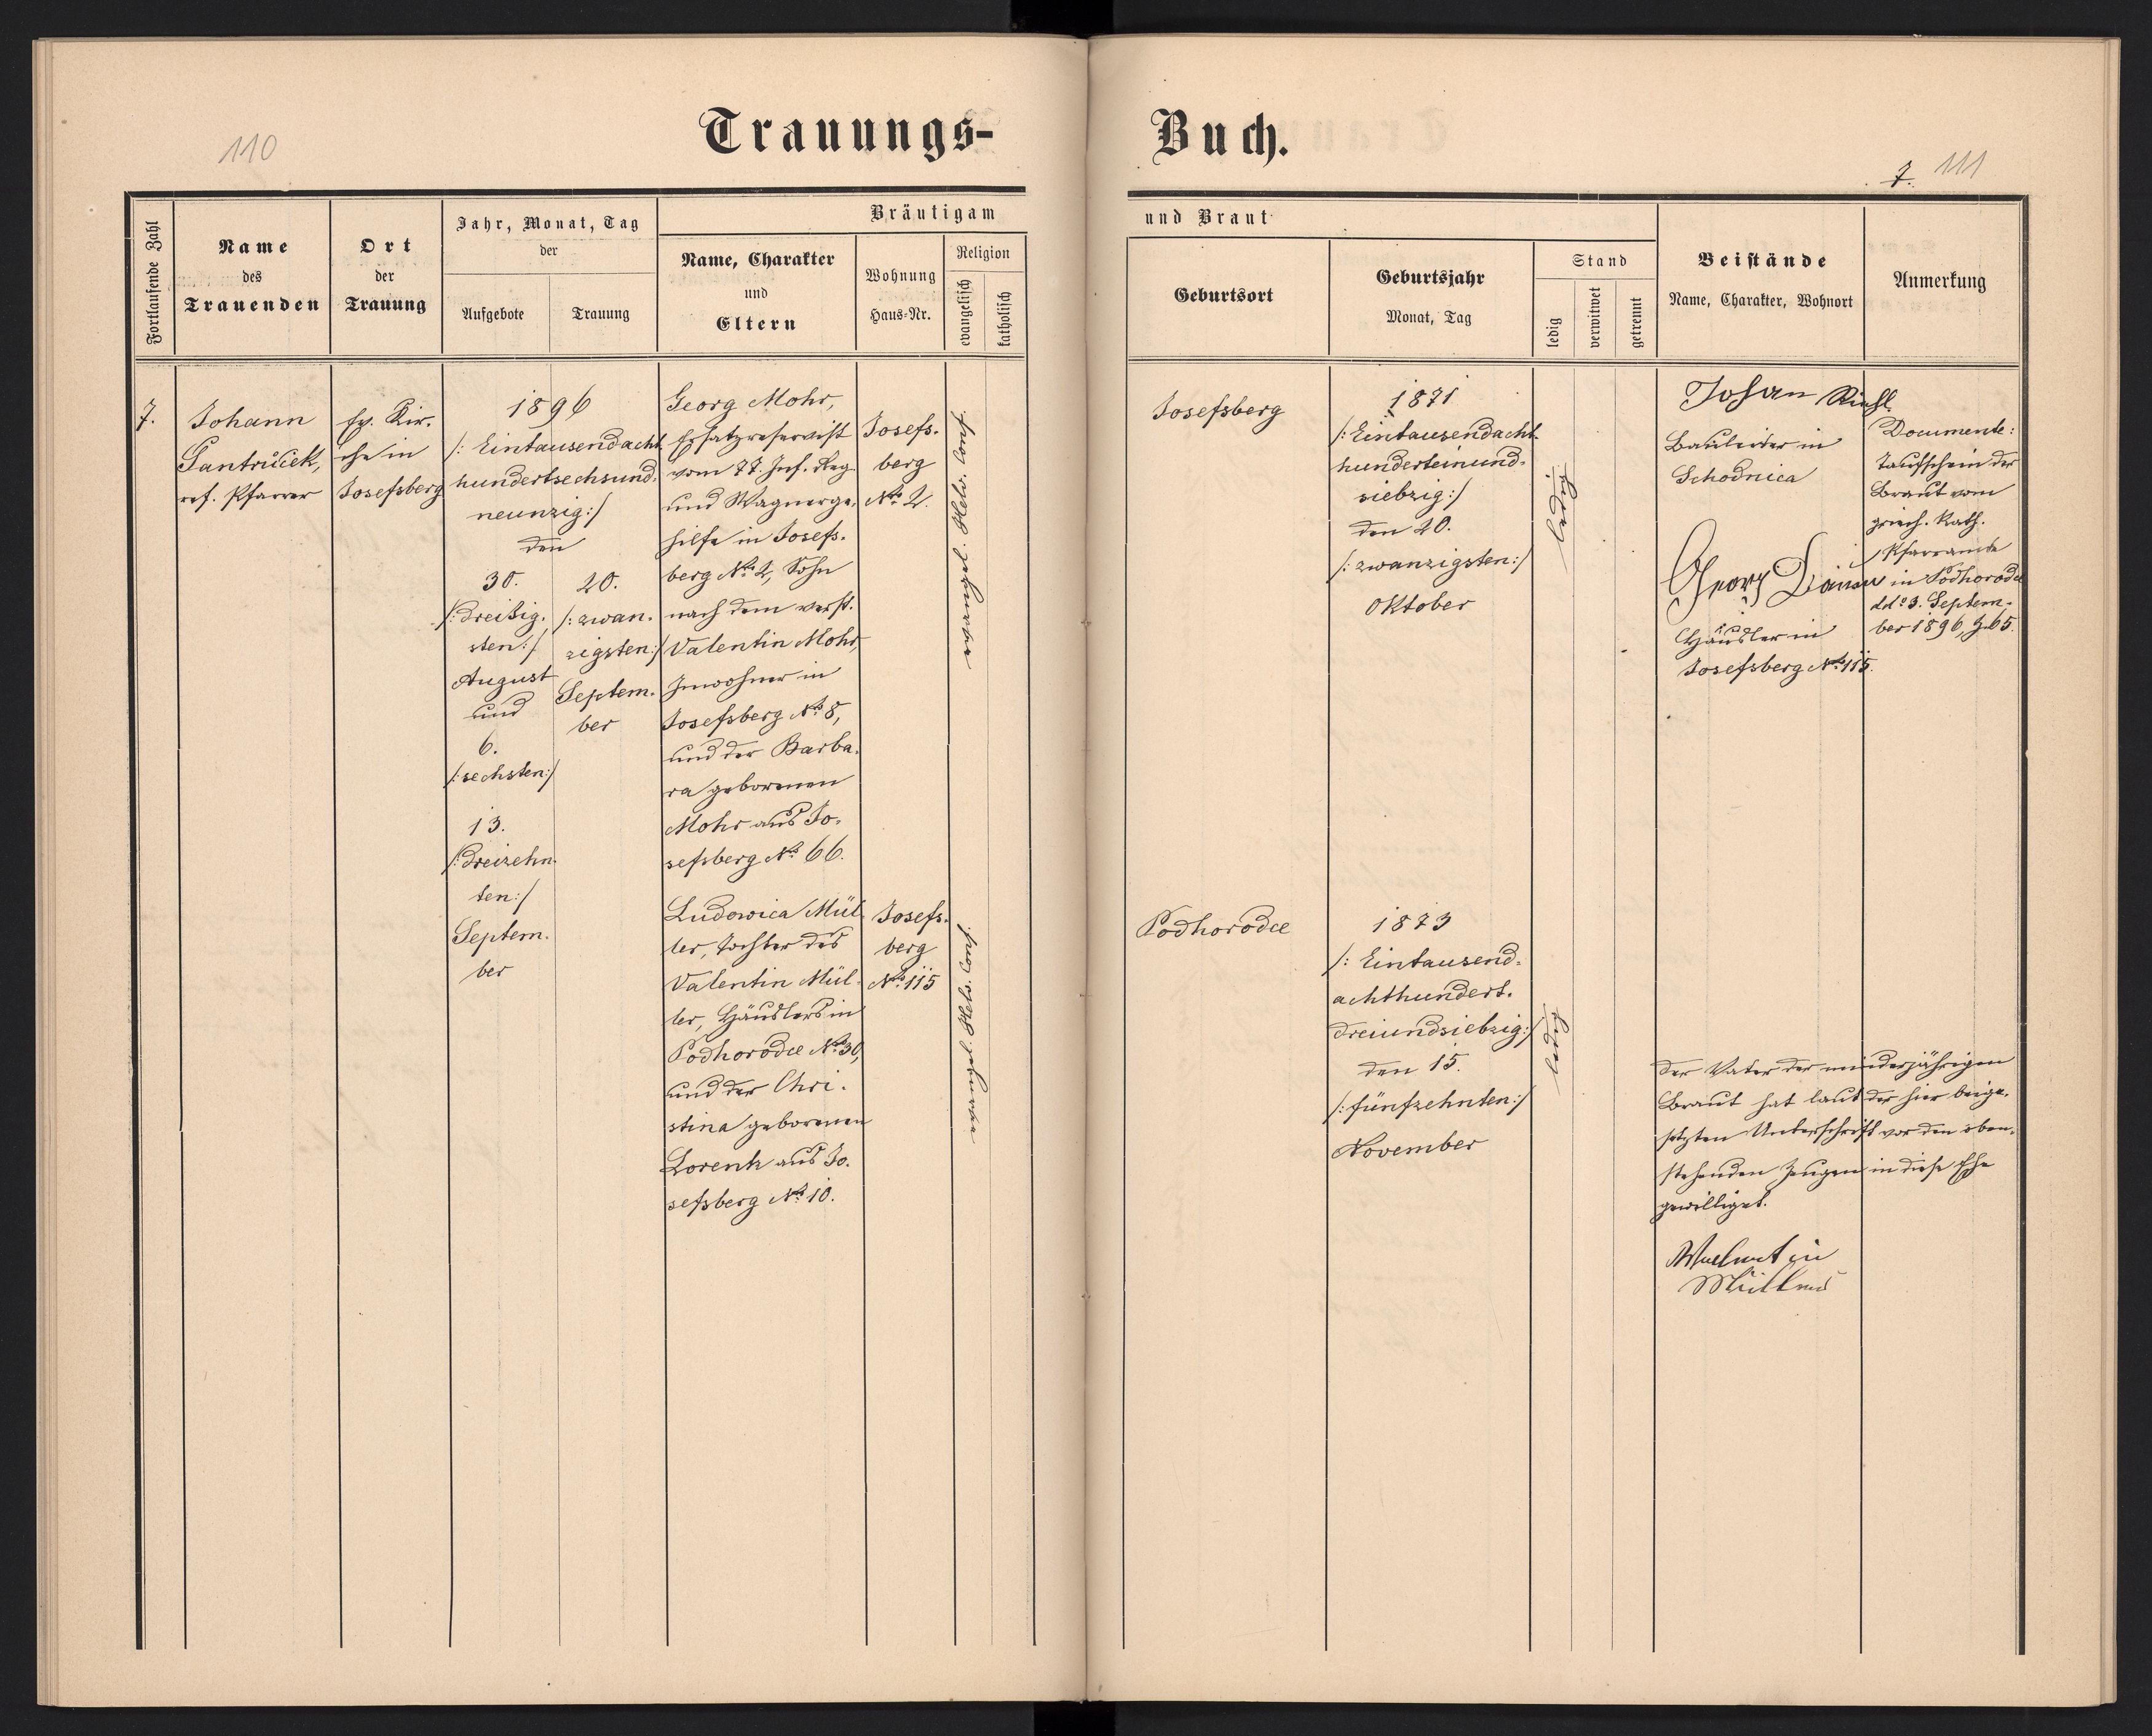 110
Trauungs-
Fortlaufende Zahl
Name
des
Trauenden
Ort
der
Trauung
Jahr, Monat, Tag
der
Aufgebote
Trauung
Bräutigam
Name, Charakter
und
Eltern
Wohnung
Haus-Nr.
Religion
evangelisch
katholisch
7.
Johann
Jantrůček,
ref. Pfarrer
Ev. Kir-
che in
Josefsberg
1896
/: Eintausendacht-
hundertsechsund-
neunzig :/
den
30.
/: dreißig-
sten :/
August
und
6.
/: sechsten :/
13.
/: dreizehn-
ten :/
Septem-
ber
20.
/: zwan-
zigsten :/
Septem-
ber
Georg Mohr,
Ersatzreservist
vom 77. Inf. Reg.
und Wagnerge-
hilfe in Josefs-
berg No. 2, Sohn
nach dem verst.
Valentin Mohr,
Inwohner in
Josefsberg No. 8,
und der Barba-
ra geborenen
Mohr aus Jo-
sefsberg No. 66.
Josefs-
berg
No. 2.
evangel. Helv. Conf.
Ludowica Mül-
ler, Tochter des
Valentin Mül-
ler, Häuslers in
Podhorodce No. 30,
und der Chri-
stina geborenen
Lorenh aus Jo-
sefsberg No. 10.
Josefs-
berg
No. 115
evangel. Helv. Conf.
Buch.
7. 111
und Braut
Geburtsort
Geburtsjahr
Monat, Tag
Stand
ledig
verwitwet
getrennt
Beistände
Name, Charakter, Wohnort
Anmerkung
Josefsberg
1871
/: Eintausendacht-
hunderteinund-
siebzig :/
den 20.
/: zwanzigsten :/
Oktober
ledig
Johan
Bauleiter in
Schodnica
Georg
Häusler in
Josefsberg No. 115.
Documente:
Taufschein der
Braut vom
griech. kath.
Pfarramte
in Podhorodce
ddo 3. Septem-
ber 1896, Z. 65.
Podhorodce
1873
/: Eintausend-
achthundert-
dreiundsiebzig :/
den 15.
/: fünfzehnten :/
November
ledig
Der Vater der minderjährigen
Braut hat laut der hier beige-
setzten Unterschrift vor den oben-
stehenden Zeugen in diese Ehe
gewilliget.